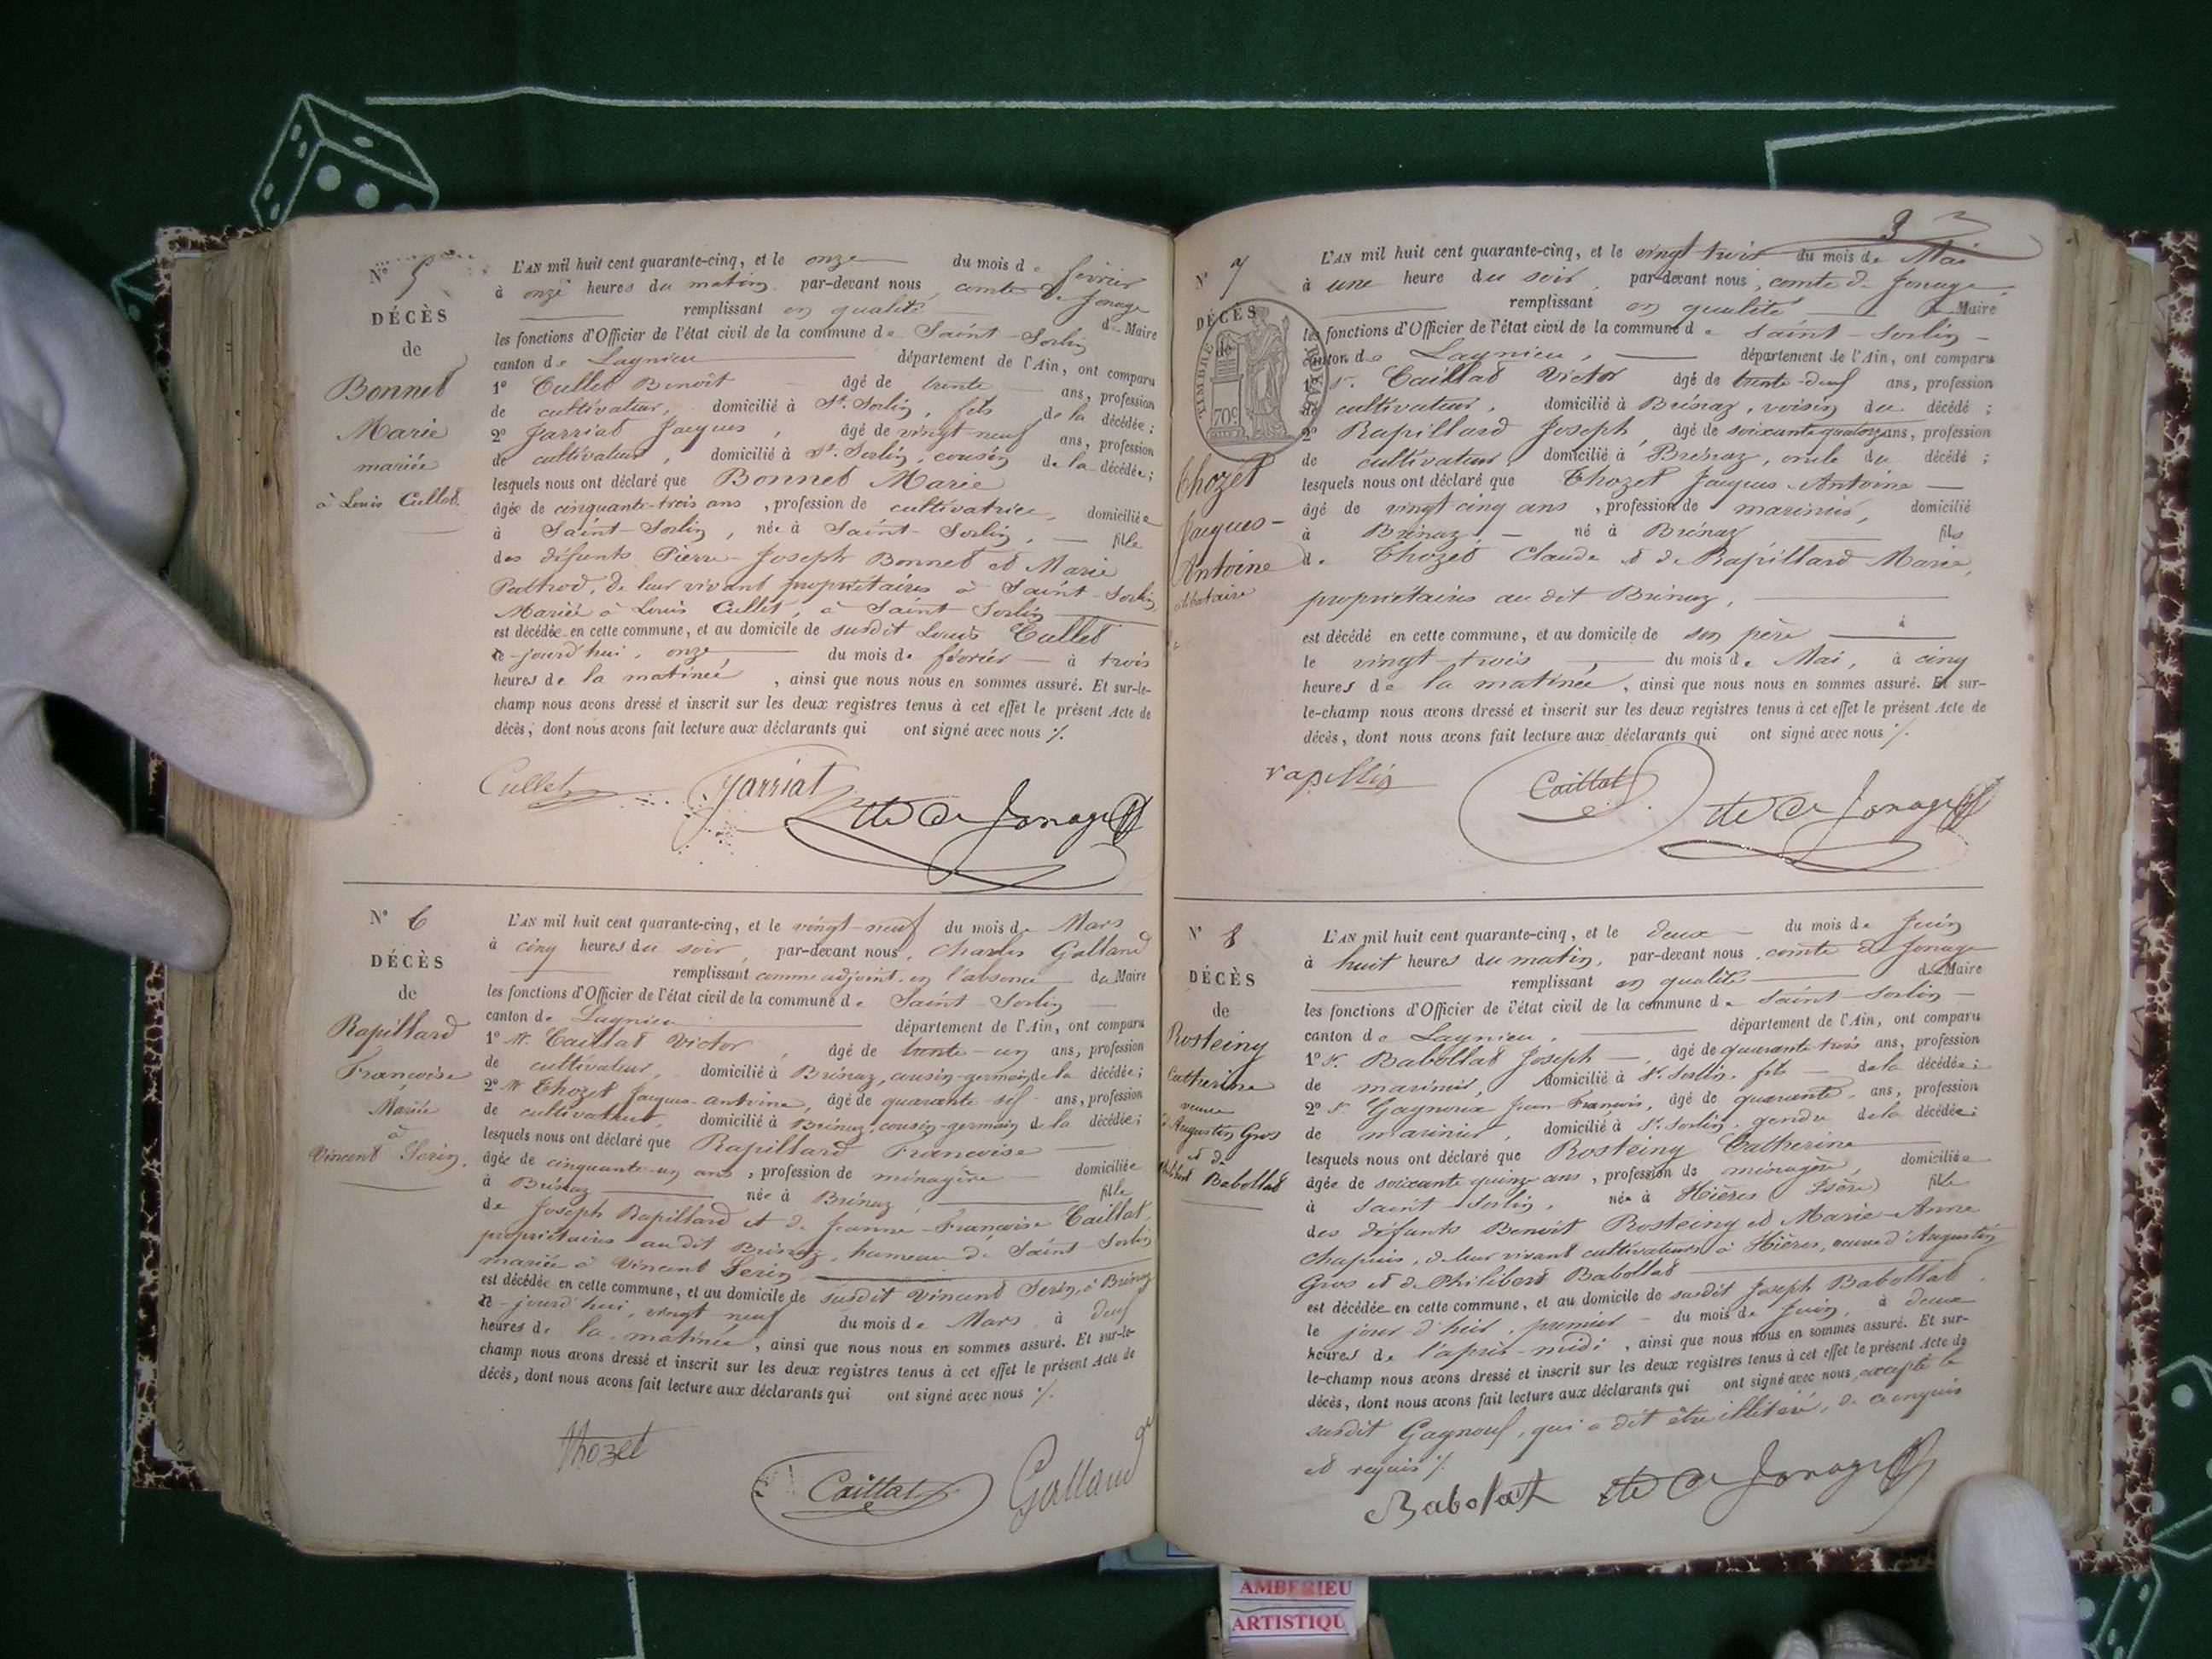 N° 5
DÉCÈS
de
Bonnet
Marie
mariée
à Louis Cullet.
L'AN mil huit cent quarante-cinq, et le onze du mois de février
à onze heures du matin par-devant nous, comte de Jonage
remplissant en qualité de Maire
les fonctions d'Officier de l'état civil de la commune de Saint-Sorlin
canton de Lagnieu département de l'Ain, ont comparu
1° Cullet Benoît âgé de trente ans, profession
de cultivateur, domicilié à St. Sorlin, fils de la décédée;
2° Jarriat Jacques, âgé de vingt neuf ans, profession
de cultivateur, domicilié à St. Sorlin, cousin de la décédée;
lesquels nous ont déclaré que Bonnet Marie
âgée de cinquante-trois ans, profession de cultivatrice, domiciliée
à Saint Sorlin, née à Saint-Sorlin, fille
des défunts Pierre-Joseph Bonnet et Marie
de leur vivant propriétaires à Saint-Sorlin,
Mariée à Louis Cullet, à Saint-Sorlin
est décédée en cette commune, et au domicile de susdit Louis Cullet
ce-jourd'hui, onze, du mois de février à trois
heures de la matinée, ainsi que nous nous en sommes assuré. Et sur-le-
champ nous avons dressé et inscrit sur les deux registres tenus à cet effet le présent Acte de
décès, dont nous avons fait lecture aux déclarants qui ont signé avec nous ./.
Cullet Jarriat Cte de Jonage
N° 6
DÉCÈS
de
Rapillard
Françoise
Mariée
à
Vincent Serin.
L'AN mil huit cent quarante-cinq, et le vingt-neuf du mois de Mars
à cinq heures du soir, par-devant nous, Charles Galland
remplissant comme adjoint, en l'absence du Maire
les fonctions d'Officier de l'état civil de la commune de Saint-Sorlin
canton de Lagnieu département de l'Ain, ont comparu
1° Mr. Caillat Victor, âgé de trente-un ans, profession
de cultivateur, domicilié à Brénaz, cousin-germain de la décédée;
2° Mr Thozet Jacques-antoine, âgé de quarante-six ans, profession
de cultivateur, domicilié à Brénaz, cousin-germain de la décédée;
lesquels nous ont déclaré que Rapillard Françoise
âgée de cinquante-un ans, profession de ménagère domiciliée
à Brénaz née à Brénaz, fille
de Joseph Rapillard et de Jeanne-Françoise Caillat,
propriétaires au dit Brénaz, hameau de Saint-Sorlin
mariée à Vincent Serin,
est décédée en cette commune, et au domicile de susdit Vincent Serin, à Brénaz
ce-jourd'hui, vingt neuf du mois de Mars, à deux
heures de la matinée, ainsi que nous nous en sommes assuré. Et sur-le-
champ nous avons dressé et inscrit sur les deux registres tenus à cet effet le présent Acte de
décès, dont nous avons fait lecture aux déclarants qui ont signé avec nous ./.
Thozet Caillat Galland
3
N° 7
DÉCÈS
de
TIMBRE ROYAL
70c
Thozet
Jacques-
Antoine
célibataire
L'AN mil huit cent quarante-cinq, et le vingt trois du mois de Mai
à une heure du soir, par-devant nous, comte de Jonage,
remplissant en qualité de Maire
les fonctions d'Officier de l'état civil de la commune de saint-Sorlin
canton de Lagnieu, département de l'Ain, ont comparu
1° Sr. Caillat Victor âgé de trente-deux ans, profession
de cultivateur, domicilié à Brénaz, voisin du décédé;
2° Rapillard Joseph, âgé de soixante quatorze ans, profession
de cultivateur, domicilié à Brénaz, oncle du décédé;
lesquels nous ont déclaré que Thozet Jacques-Antoine
âgé de vingt cinq ans, profession de marinier, domicilié
à Brénaz, né à Brénaz fils
de Thozet Claude et de Rapillard Marie,
propriétaires au dit Brénaz,
est décédé en cette commune, et au domicile de son père
le vingt-trois, du mois de Mai, à cinq
heures de la matinée, ainsi que nous nous en sommes assuré. Et sur-
le-champ nous avons dressé et inscrit sur les deux registres tenus à cet effet le présent Acte de
décès, dont nous avons fait lecture aux déclarants qui ont signé avec nous ./.
Caillat Cte de Jonage
N° 8
DÉCÈS
de
Rosteing
Catherine
veuve
d'Augustin Gros
et de
Philibert Babollat
L'AN mil huit cent quarante-cinq, et le deux du mois de Juin
à huit heures du matin, par-devant nous, comte de Jonage
remplissant en qualité de Maire
les fonctions d'Officier de l'état civil de la commune de Saint-Sorlin
canton de Lagnieu, département de l'Ain, ont comparu
1° Sr. Babollat Joseph, âgé de quarante-trois ans, profession
de marinier, domicilié à St. Sorlin, fils de la décédée;
2° Sr Gagnoux Jean-François, âgé de quarante, ans, profession
de marinier, domicilié à St. Sorlin, gendre de la décédée;
lesquels nous ont déclaré que Rosteing Catherine
âgée de soixante quinze ans, profession de ménagère, domiciliée
à Saint Sorlin, née à Hières (Isère) fille
des défunts Benoît Rosteing et Marie-Anne
Chapuis, de leur vivant cultivateurs à Hières, veuve d'Augustin
Gros et de Philibert Babollat
est décédée en cette commune, et au domicile de susdit Joseph Babollat,
le jour d'hier, premier du mois de Juin, à deux
heures de l'après-midi, ainsi que nous nous en sommes assuré. Et sur-
le-champ nous avons dressé et inscrit sur les deux registres tenus à cet effet le présent Acte de
décès, dont nous avons fait lecture aux déclarants qui ont signé avec nous, excepté le
susdit Gagnoux, qui a dit être illitéré, de ce enquis
et requis ./.
Babolat Cte de Jonage
AMBERIEU
ARTISTIQU